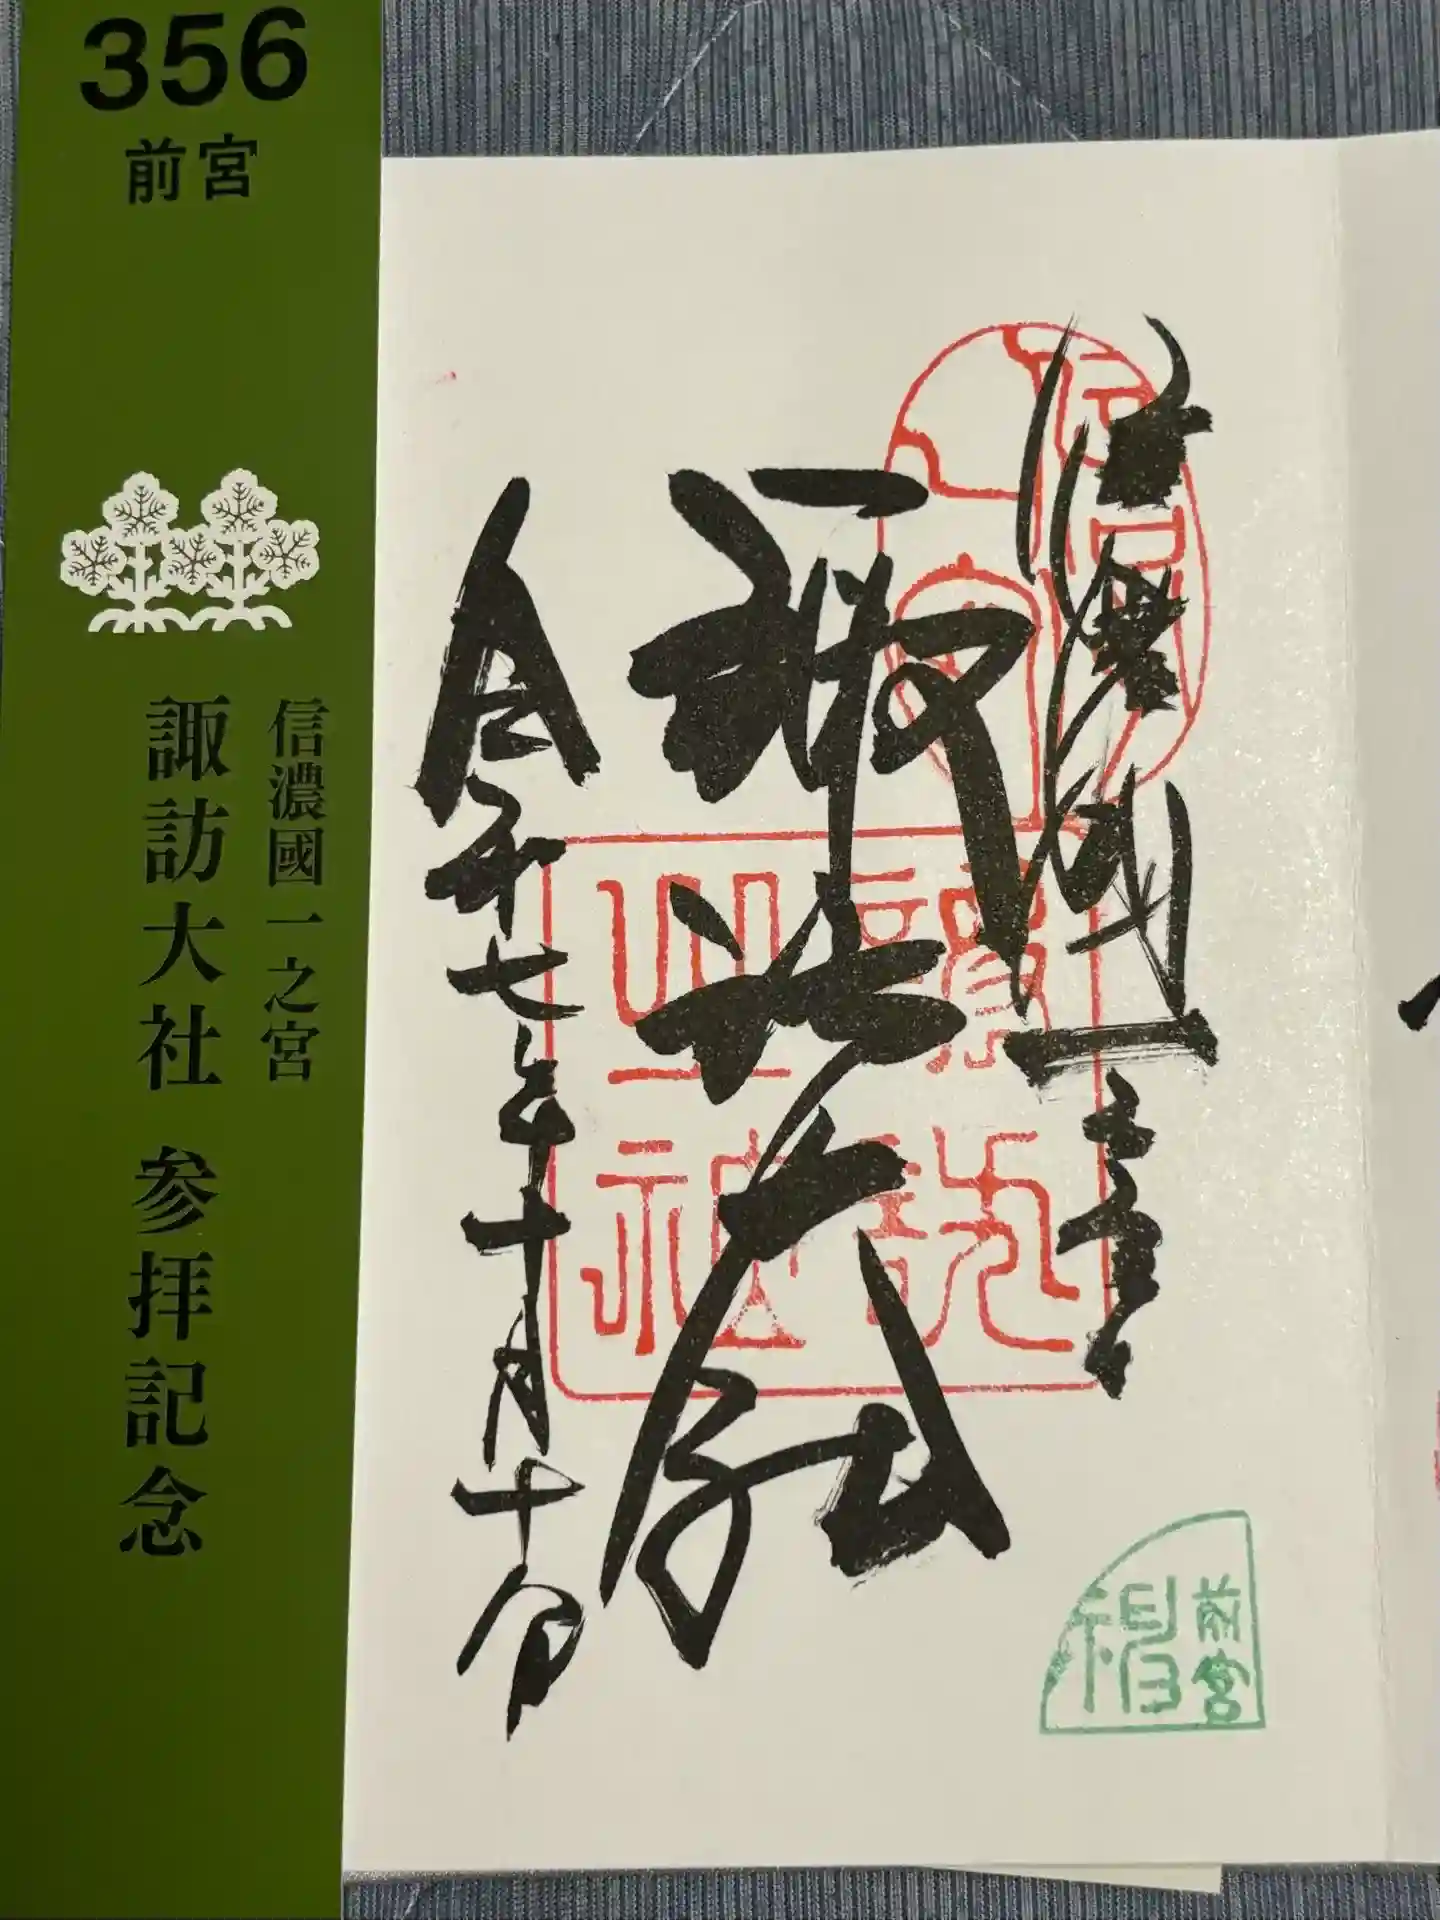 356
前宮
信濃國一之宮
諏訪大社 参拝記念
信濃國一之宮
諏訪大社
令和七年十月十八日
前宮